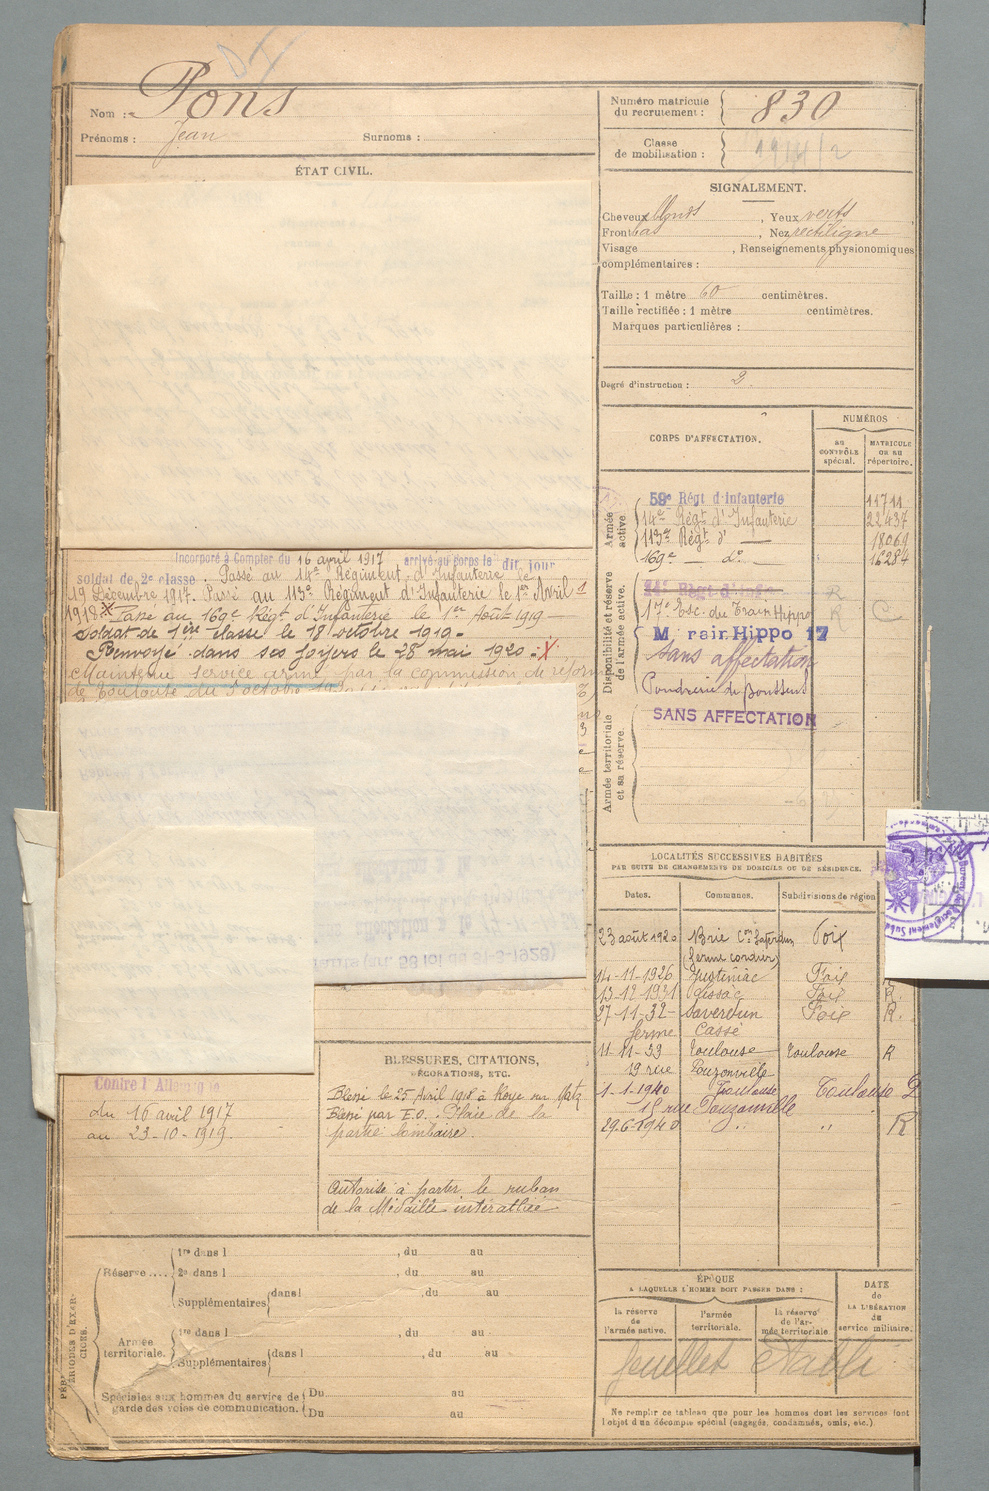 Nom : Pons
Prénoms : Jean Surnoms :
ÉTAT CIVIL.
Numéro matricule
du recrutement : 830
Classe
de mobilisation :
SIGNALEMENT.
Cheveux blonds, Yeux verts
Front bas, Nez rectiligne
Visage , Renseignements physionomiques
complémentaires :
Taille : 1 mètre 60 centimètres.
Taille rectifiée : 1 mètre centimètres.
Marques particulières :
Degré d'instruction : 2.
CORPS D'AFFECTATION.
NUMÉROS
au
CONTRÔLE
spécial.
MATRICULE
OU AU
répertoire.
Armée
active
59e Régt d'Infanterie 11711
14e Régt d'Infanterie 22437
113e Régt d° 18069
169e — d° — 16284
Disponibilité et réserve
de l'armée active.
14e Régt d'Infie R
17e Esc. du Train Hippo R C
M rair. Hippo 17
Sans affectation
Poudrerie de
SANS AFFECTATION
Armée territoriale
et sa réserve.
Incorporé à Compter du 16 avril 1917 arrivé au corps le dit jour
soldat de 2e classe. Passé au 14e Régiment d'Infanterie le
19 Décembre 1917. Passé au 113e Régiment d'Infanterie le 1er Avril
1918. Passé au 169e Régt d'Infanterie le 1er Août 1919 -
Soldat de 1ère classe le 18 octobre 1919 -
Renvoyé dans ses foyers le 28 mai 1920 . X
Maintenu service armé par la commission de réforme
de Toulouse du 5 octobre
LOCALITÉS SUCCESSIVES HABITÉES
PAR SUITE DE CHANGEMENTS DE DOMICILE OU DE RÉSIDENCE.
Dates. Communes. Subdivisions de région
23 août 1920 Brie Con Saverdun Foix
(ferme
14-11-1926 Justiniac Foix
13-12-1931 Lissac Foix R.
27-11-32- Saverdun Foix R.
ferme Cassé
11-11-33 Toulouse Toulouse R
19 rue Pouzonville
1-1-1940 Toulouse Toulouse D
18 rue Pouzonville
29-6-1940 " " R
BLESSURES, CITATIONS,
DÉCORATIONS, ETC.
Blessé le 25 Avril 1918 à Roye sur Matz
Blessé par E.O. Plaie de la
partie lombaire.
Autorisé à porter le ruban
de la Médaille interalliée
Contre l'Allemagne
du 16 avril 1917
au 23-10-1919.
PÉRIODES D'EXERCICES.
Réserve....
1re dans l , du au
2e dans l , du au
Supplémentaires dans l du au
Armée
territoriale.
1re dans l , du au
Supplémentaires dans l , du au
Spéciales aux hommes du service de
garde des voies de communication.
Du au
Du au
ÉPOQUE
A LAQUELLE L'HOMME DOIT PASSER DANS :
la réserve
de
l'armée active.
l'armée
territoriale.
la réserve
de l'ar-
mée territoriale
DATE
de
LA LIBÉRATION
du
service militaire.
feuillet établi
Ne remplir ce tableau que pour les hommes dont les services font
l'objet d'un décompte spécial (engagés, condamnés, omis, etc.)